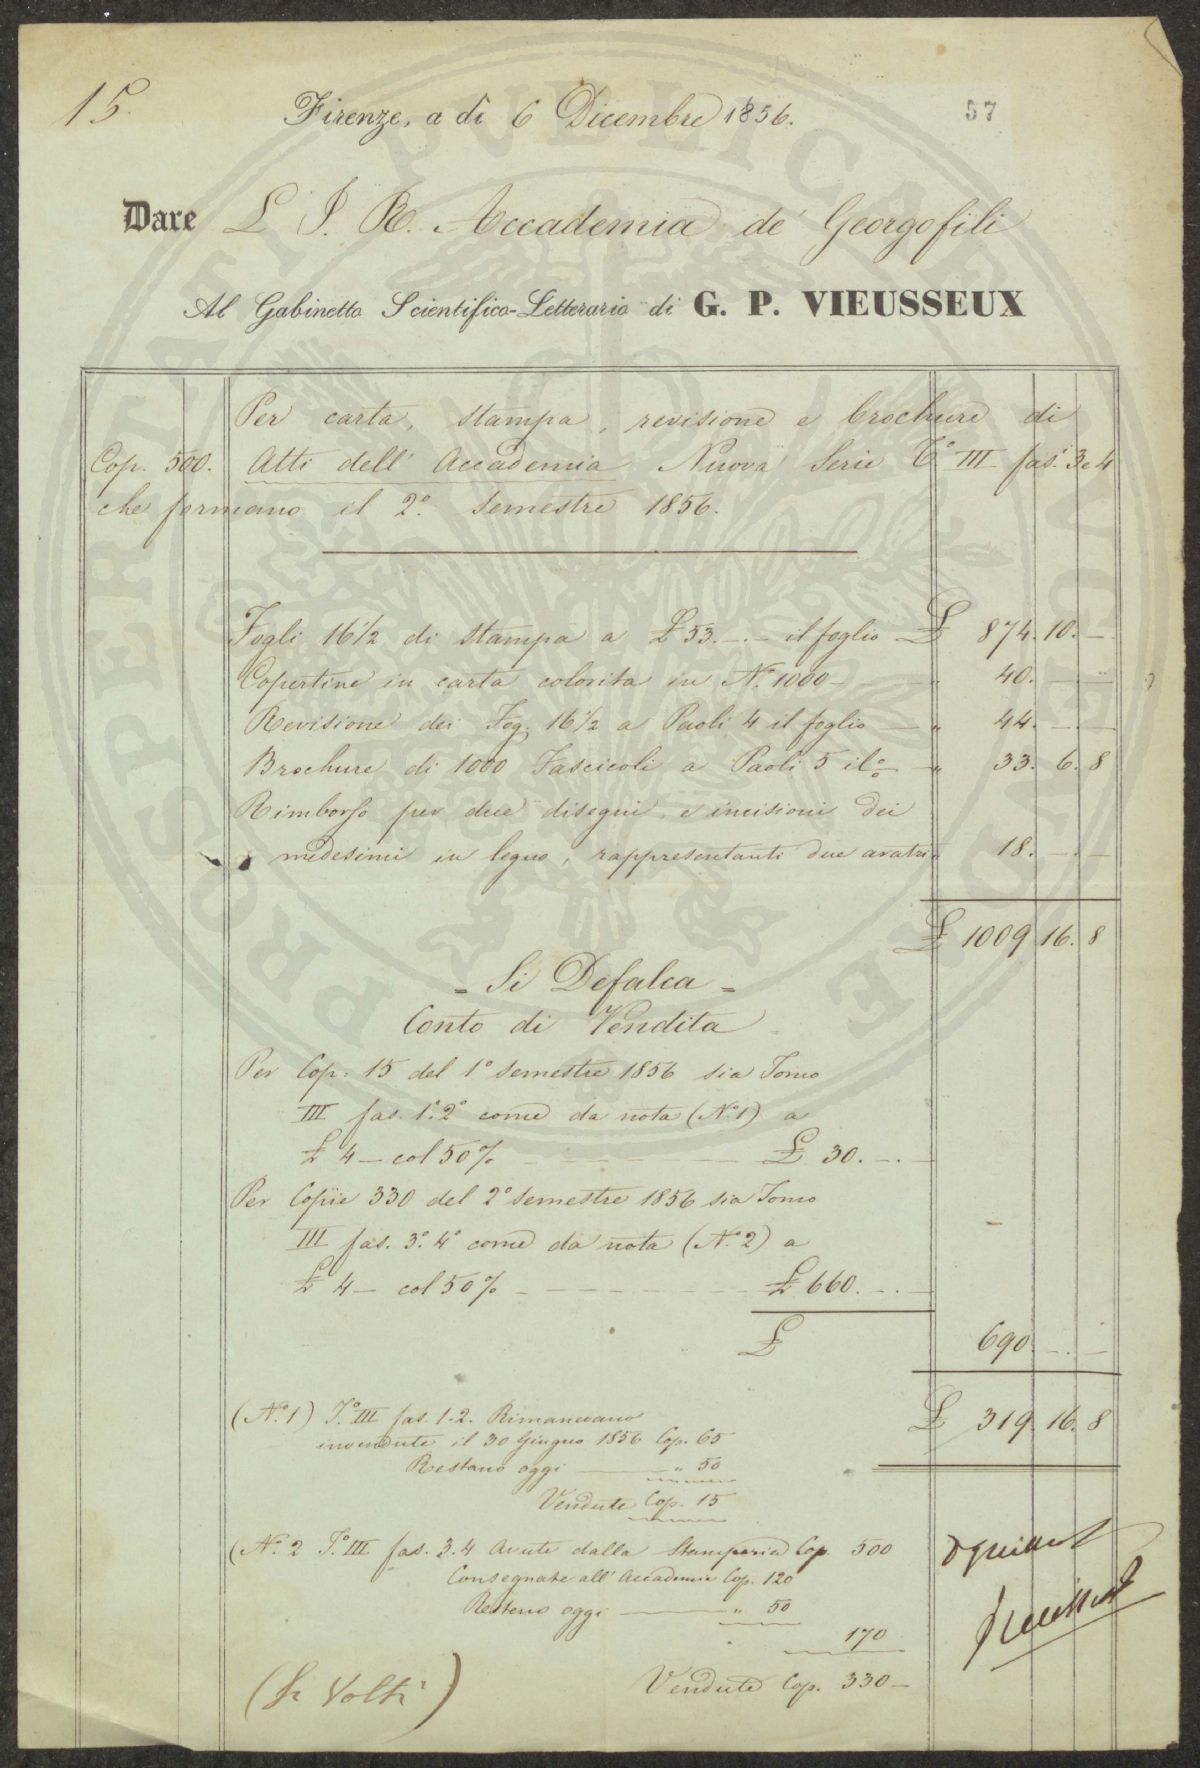 15.
Firenze, a dì 6 Dicembre 1856.
57
Dare L'I. R. Accademia de' Georgofili
Al Gabinetto Scientifico-Letterario di G. P. VIEUSSEUX
Per carta, stampa, revisione e brochure di
Cop. 500. Atti dell' Accademia Nuova Serie T.° III fas. 3 e 4
che formano il 2° Semestre 1856.
Fogli 16 1/2 di stampa a £ 53.-.- il foglio £ 874. 10. -
Copertine in carta colorita in N.° 1000 - " 40. - -
Revisione dei Fog. 16 1/2 a Paoli 4 il foglio - " 44. - -
Brochure di 1000 Fascicoli a Paoli 5 il % - " 33. 6. 8
Rimborso per due disegni, e incisioni dei
medesimi in legno, rappresentanti due aratri " 18. - -
£ 1009 16. 8
= Si Defalca =
Conto di Vendita
Per Cop. 15 del 1° Semestre 1856 sia Tomo
III fas. 1° 2° come da nota (N.° 1) a
£ 4 - col 50 % - - - £ 30. -. -
Per Copie 330 del 2° Semestre 1856 sia Tomo
III fas. 3° 4° come da nota (N.° 2) a
£ 4 - col 50 % - - - £ 660. -. -
£ 690. - -
£ 319. 16. 8
(N.° 1) T.° III fas. 1. 2. Rimanevano
invendute il 30 Giugno 1856 Cop. 65
Restano oggi " 50
Vendute Cop. 15
(N.° 2 T.° III fas. 3. 4 Avute dalla Stamperia Cop. 500
Consegnate all' Accademia Cop. 120
Restano oggi " 50
170
Vendute Cop. 330 -
(Si Volti)
PROSPERITATI PUBLICAE AUGENDAE